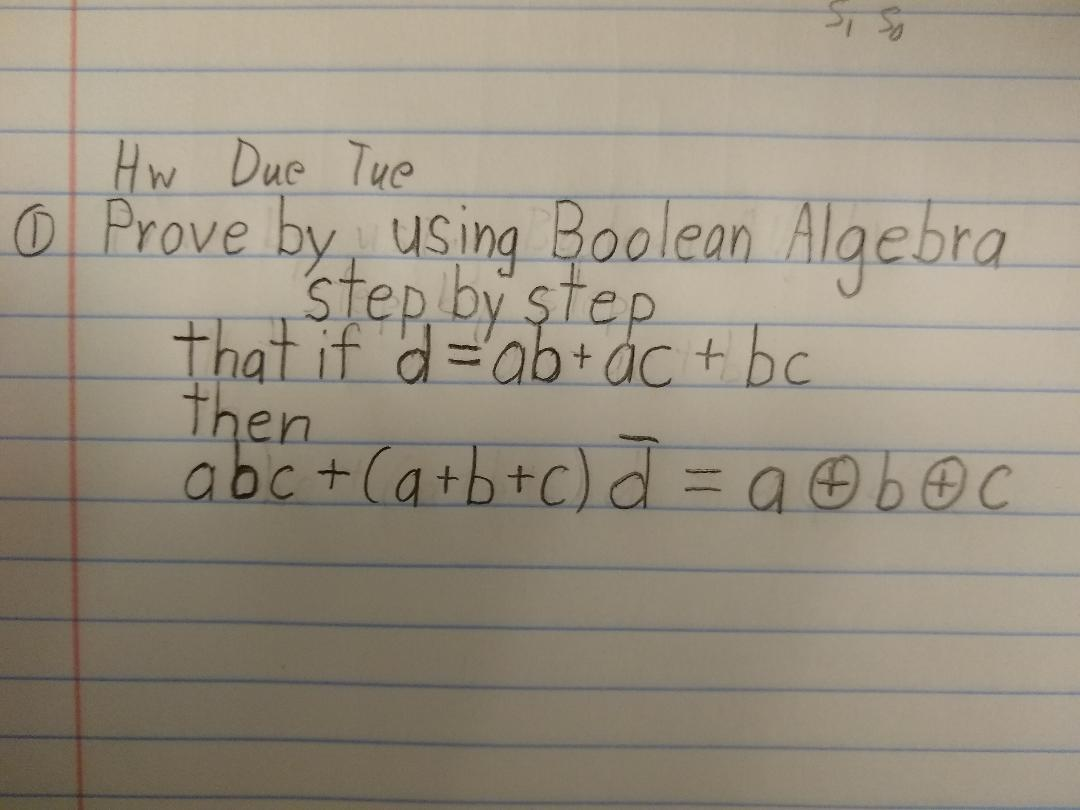 S₁ S₀
Hw Due Tue
① Prove by using Boolean Algebra
step by step
that if d = ab + ac + bc
then
abc + (a+b+c) d̅ = a ⊕ b ⊕ c